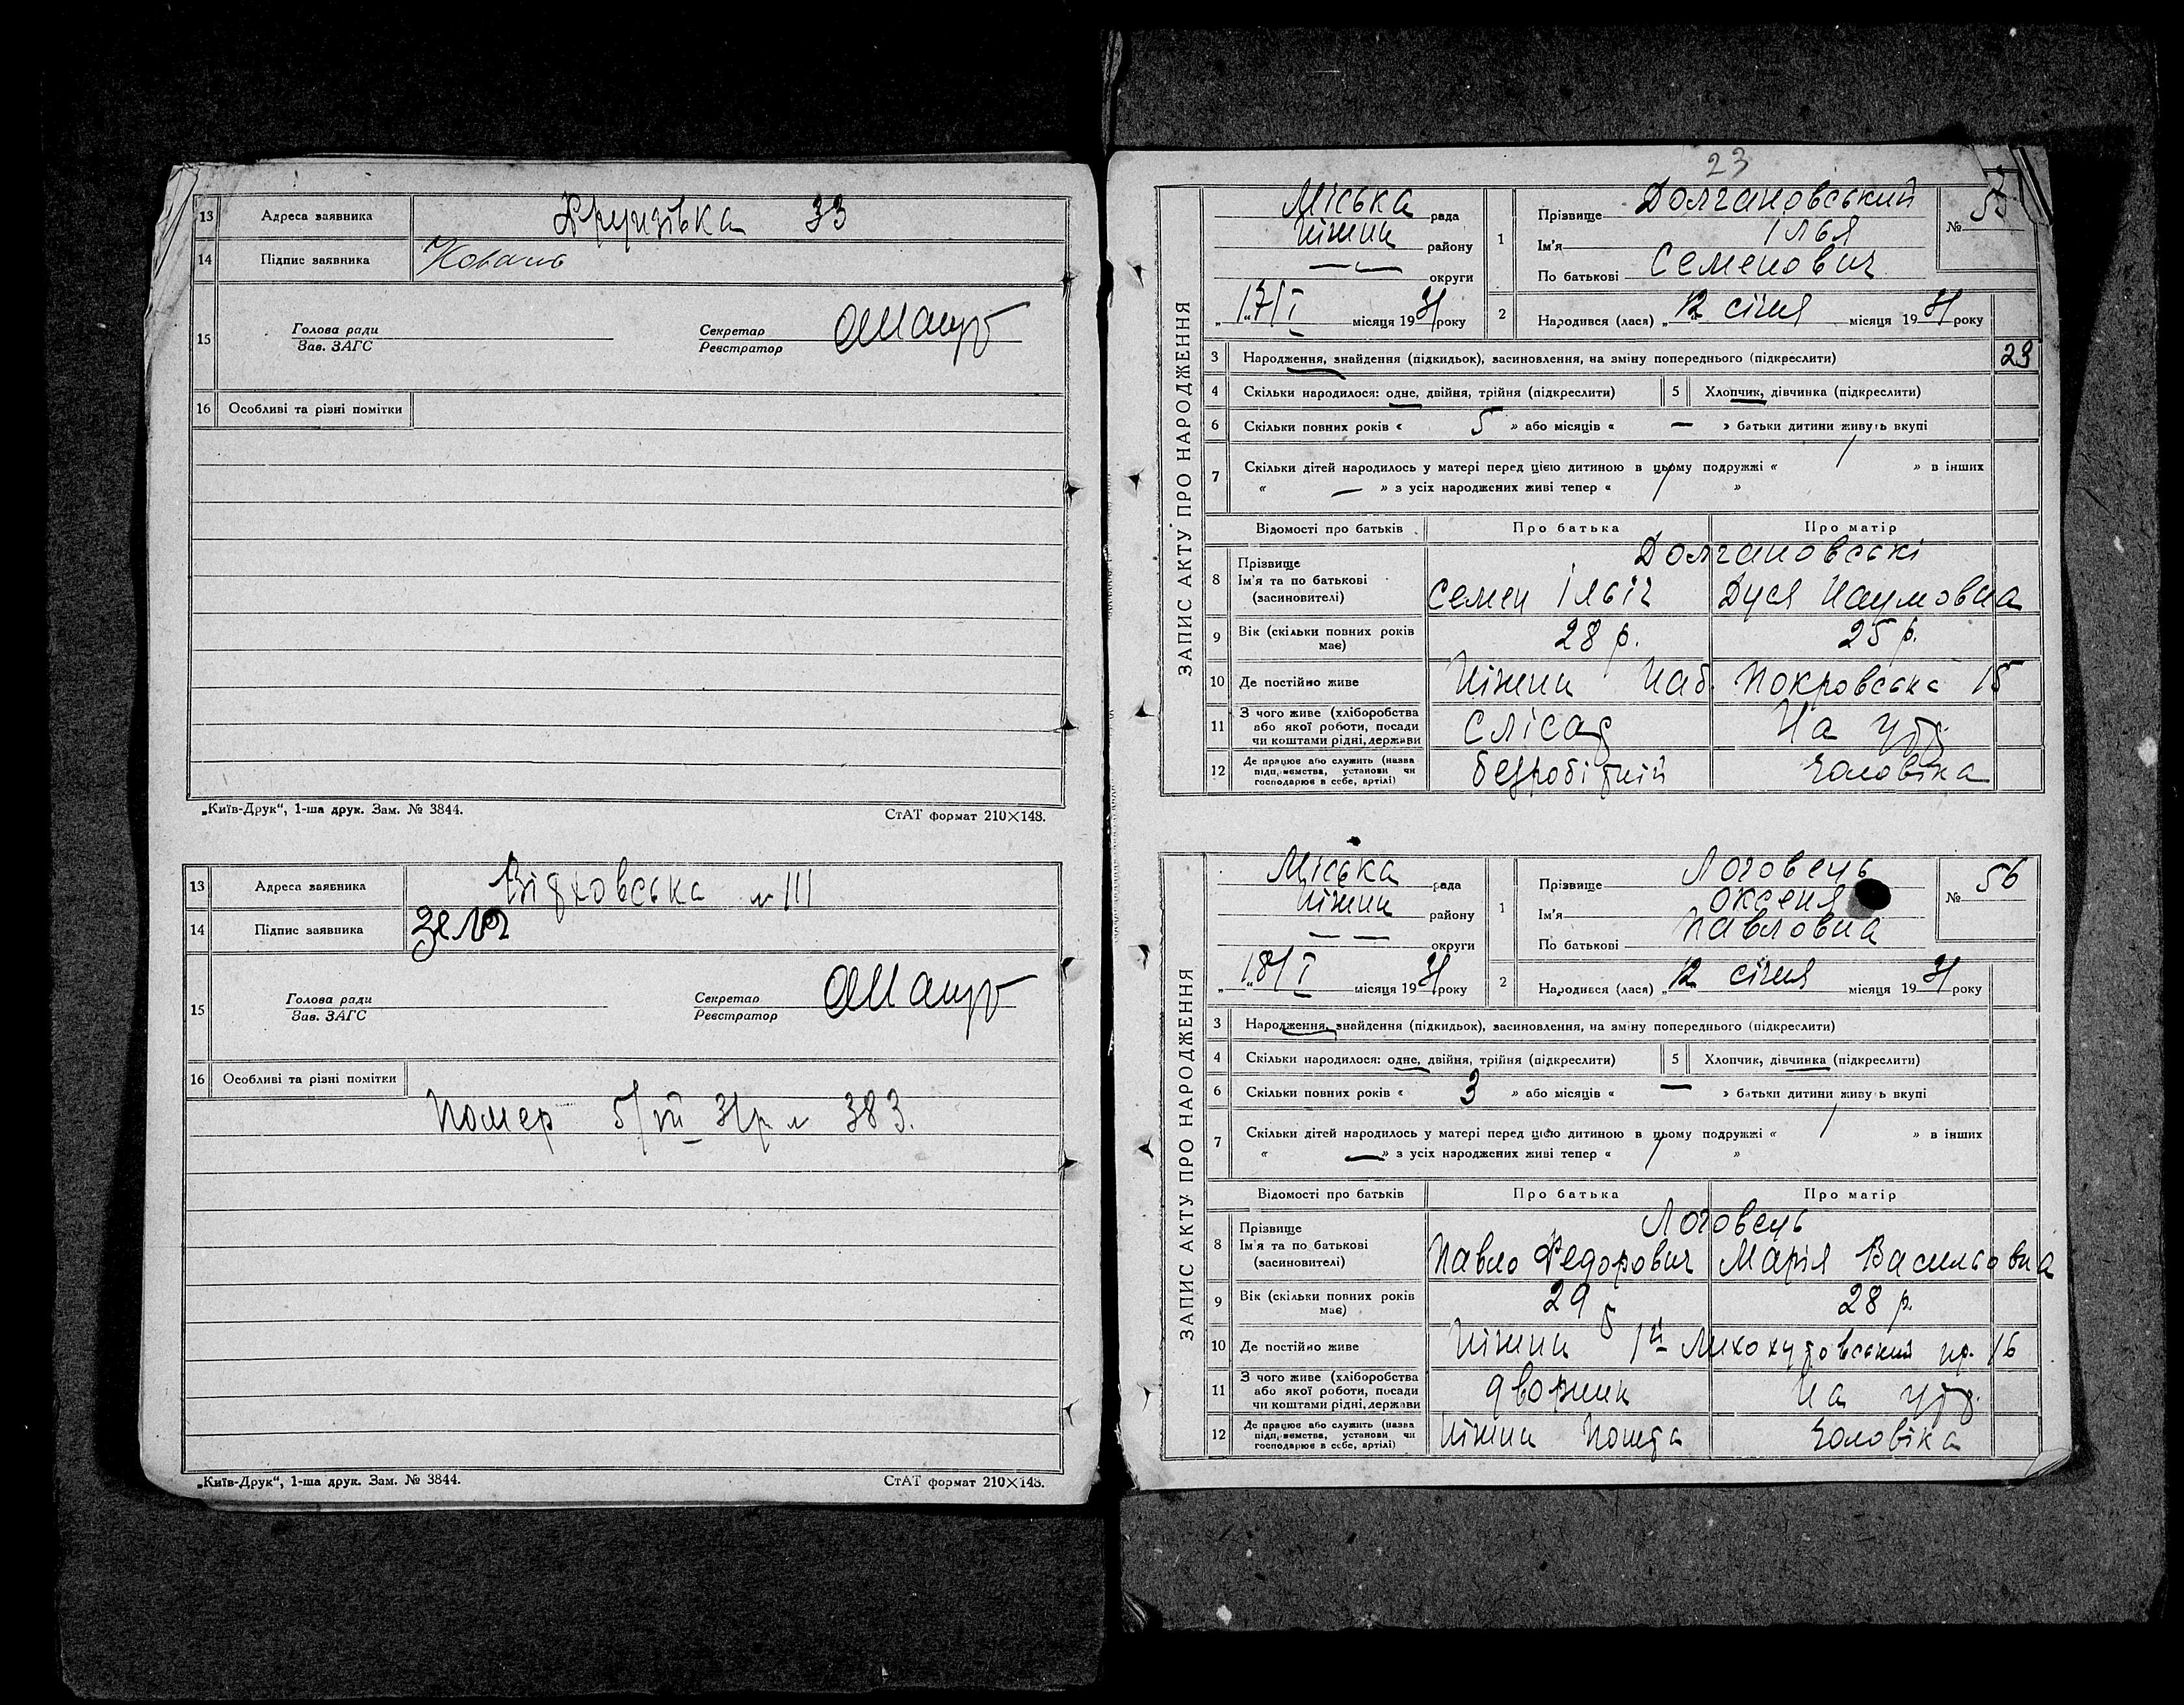 13 Адреса заявника Фрунзівка 33
14 Підпис заявника Коваль
15 Голова ради Секретар
Зав. ЗАГС Реєстратор
16 Особливі та різні помітки
„Київ-Друк“, 1-ша друк. Зам. № 3844. СтАТ формат 210×148.
13 Адреса заявника №111
14 Підпис заявника
15 Голова ради Секретар
Зав. ЗАГС Реєстратор
16 Особливі та різні помітки
Помер 5/VII 31р № 383.
„Київ-Друк“, 1-ша друк. Зам. № 3844. СтАТ формат 210×148.
23
ЗАПИС АКТУ ПРО НАРОДЖЕННЯ
Міська рада
Ніжин району
— — округи
„17/I місяця 1931 року
1 Прізвище Долгановський
Ім'я Ілья
По батькові Семенович
№ 55
2 Народився (лася) „12 січня місяця 1931 року
3 Народження, знайдення (підкидьок), васиновлення, на зміну попереднього (підкреслити) 23
4 Скільки народилося: одне, двійня, трійня (підкреслити) 5 Хлопчик, дівчинка (підкреслити)
6 Скільки повних років « 5 » або місяців « — » батьки дитини живуть вкупі
7 Скільки дітей народилось у матері перед цією дитиною в цьому подружжі « 1 » в інших
« — » з усіх народжених живі тепер « 1 »
Відомості про батьків Про батька Про матір
Долгановські
8 Прізвище
Ім'я та по батькові
(засиновителі) Семен Ільїч Дуся Наумовна
9 Вік (скільки повних років має) 28 р. 25 р.
10 Де постійно живе Ніжин Наб. Покровська 15
11 З чого живе (хліборобства
або якої роботи, посади
чи коштами рідні, держави Слісар На утр.
12 Де працює або служить (назва
підприємства, установи чи
господарює в себе, артілі) безробітній чоловіка
ЗАПИС АКТУ ПРО НАРОДЖЕННЯ
Міська рада
Ніжин району
— — округи
„18/I місяця 1931 року
1 Прізвище Логовець
Ім'я Оксеня
По батькові Павловна
№ 56
2 Народився (лася) „12 січня місяця 1931 року
3 Народження, знайдення (підкидьок), васиновлення, на зміну попереднього (підкреслити)
4 Скільки народилося: одне, двійня, трійня (підкреслити) 5 Хлопчик, дівчинка (підкреслити)
6 Скільки повних років « 3 » або місяців « — » батьки дитини живуть вкупі
7 Скільки дітей народилось у матері перед цією дитиною в цьому подружжі « 1 » в інших
« — » з усіх народжених живі тепер « 1 »
Відомості про батьків Про батька Про матір
Логовець
8 Прізвище
Ім'я та по батькові
(засиновителі) Павло Федорович Марія Васильовна
9 Вік (скільки повних років має) 29 р 28 р.
10 Де постійно живе Ніжин 1й пр. 16
11 З чого живе (хліборобства
або якої роботи, посади
чи коштами рідні, держави дворник на утр.
12 Де працює або служить (назва
підприємства, установи чи
господарює в себе, артілі) Ніжин Пошта чоловіка